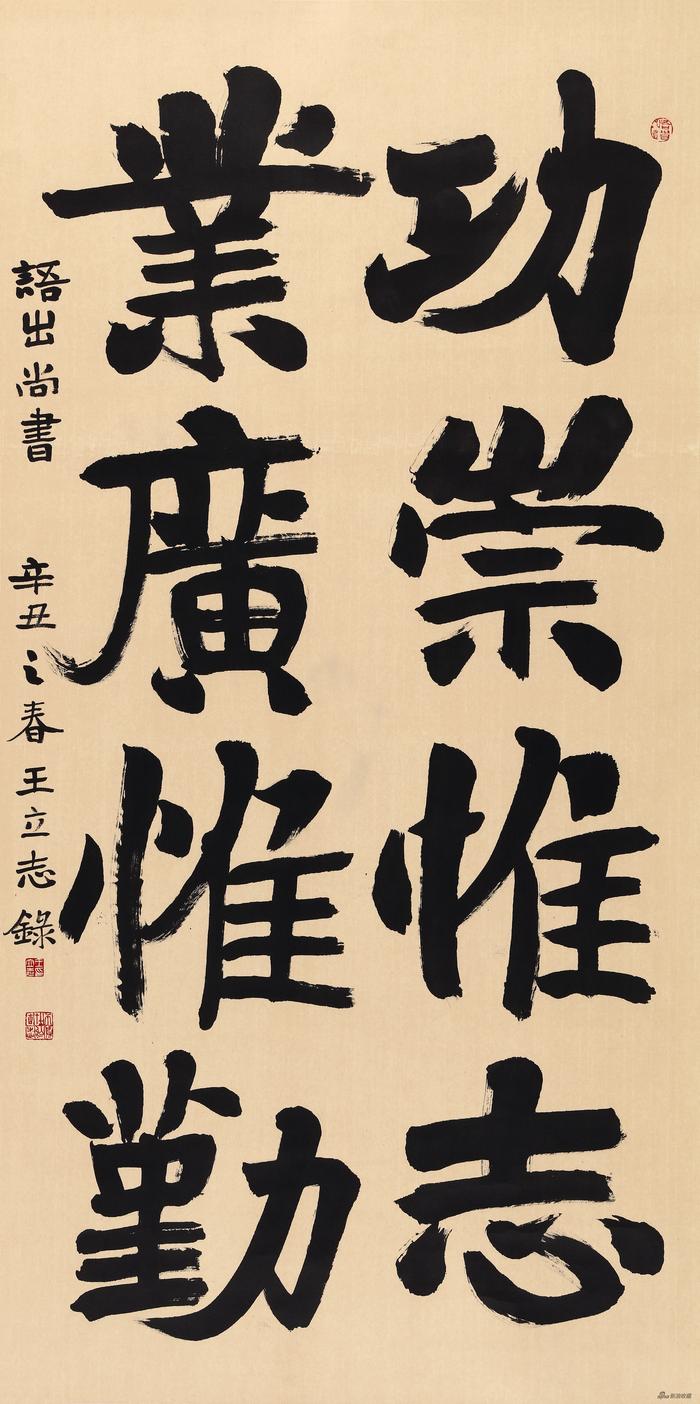 功崇惟志
業廣惟勤
語出尚書 辛丑之春王立志錄
新浪收藏